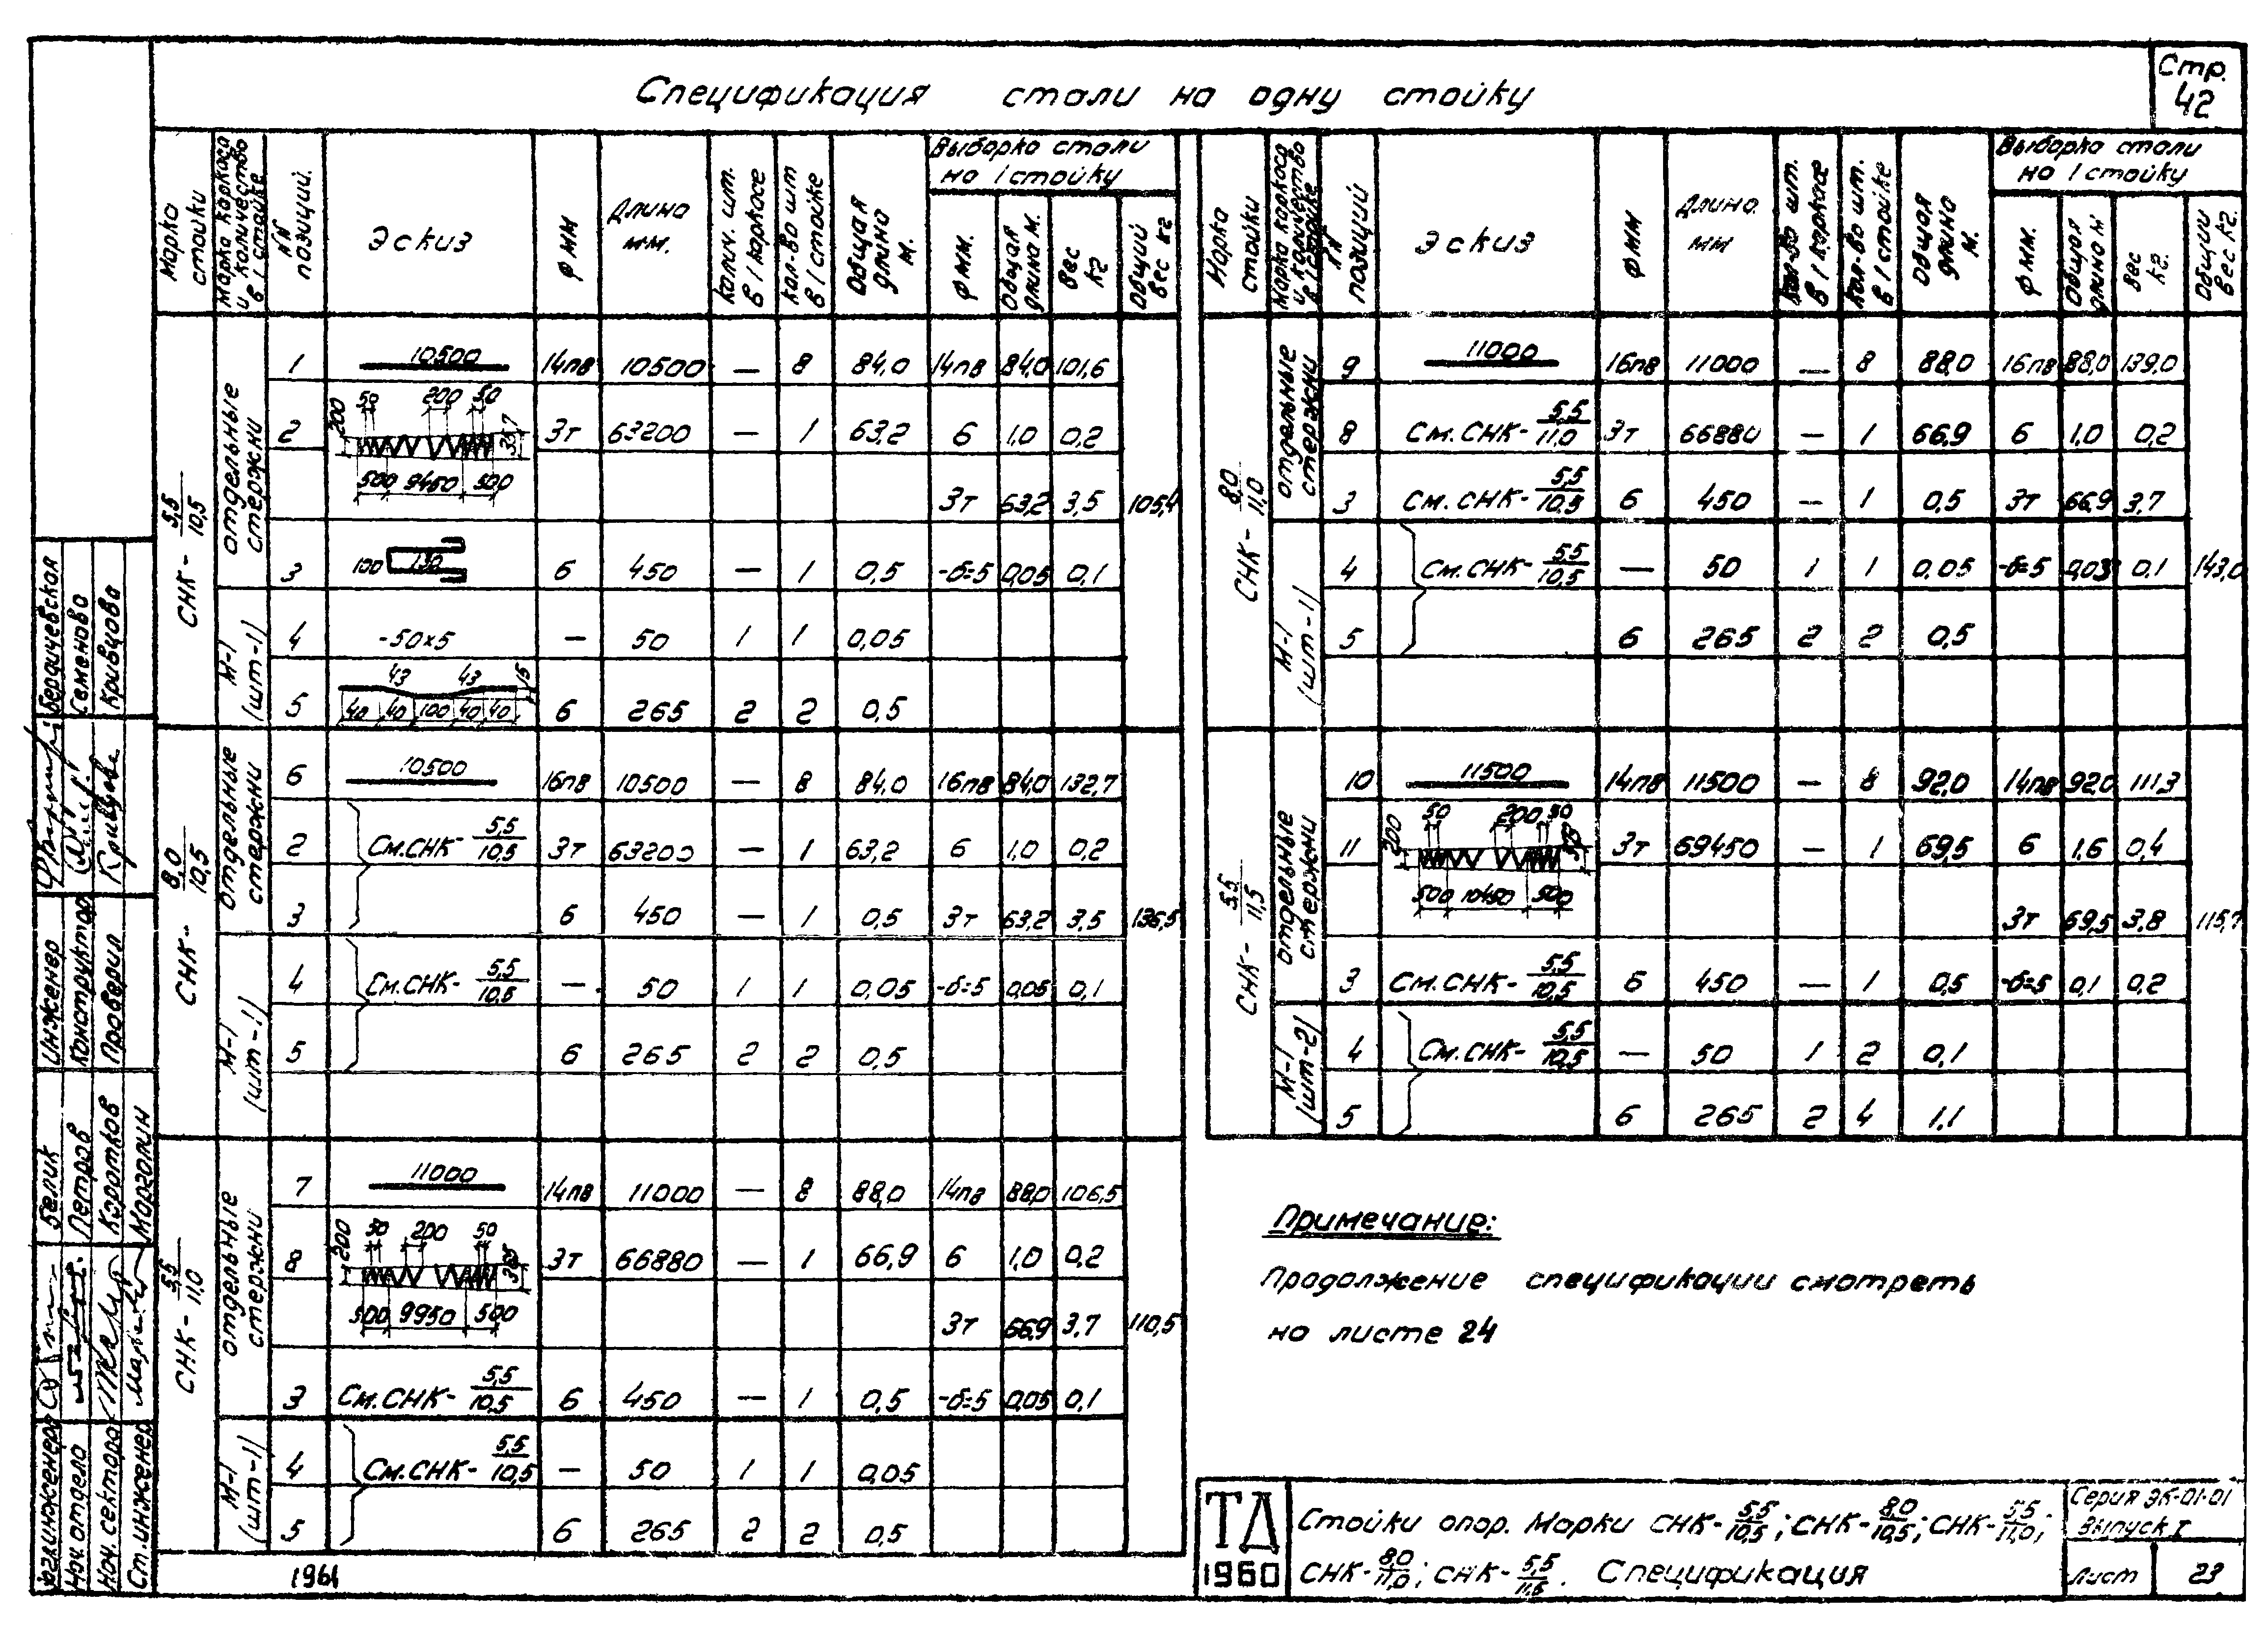 Стр.
42
Спецификация стали на одну стойку
Марка стойки
Марка каркаса и количество в 1 стойке
NN позиций.
Эскиз
Ф мм
Длина мм.
Колич. шт. в 1 каркасе
Кол-во шт в 1 стойке
Общая длина м.
Выборка стали на 1 стойку
Ф мм.
Общая длина м.
Вес кг
Общий вес кг
СНК- 5,5/10,5
отдельные стержни
1 10500 14пв 10500 — 8 84,0 14пв 84,0 101,6
2 200 50 200 50 500 9450 500 3т 63200 — 1 63,2 6 1,0 0,2
3т 63,2 3,5 105,4
3 100 130 6 450 — 1 0,5 -б=5 0,05 0,1
М-1 (шт-1)
4 -50х5 — 50 1 1 0,05
5 43 43 15 40 40 100 40 40 6 265 2 2 0,5
СНК- 8,0/10,5
отдельные стержни
6 10500 16пв 10500 — 8 84,0 16пв 84,0 132,7
2 См.СНК- 5,5/10,5 3т 63200 — 1 63,2 6 1,0 0,2
3 6 450 — 1 0,5 3т 63,2 3,5 136,5
М-1 (шт-1)
4 См.СНК- 5,5/10,5 — 50 1 1 0,05 -б=5 0,05 0,1
5 6 265 2 2 0,5
СНК- 5,5/11,0
отдельные стержни
7 11000 14пв 11000 — 8 88,0 14пв 88,0 106,5
8 200 50 200 50 500 9950 500 3т 66880 — 1 66,9 6 1,0 0,2
3т 66,9 3,7 110,5
3 См.СНК- 5,5/10,5 6 450 — 1 0,5 -б=5 0,05 0,1
М-1 (шт-1)
4 См.СНК- 5,5/10,5 — 50 1 1 0,05
5 6 265 2 2 0,5
Марка стойки
Марка каркаса и количество в 1 стойке
NN позиций
Эскиз
Ф мм
Длина мм
Кол-во шт. в 1 каркасе
Кол-во шт. в 1 стойке
Общая длина м.
Выборка стали на 1 стойку
Ф мм.
Общая длина м
Вес кг.
Общий вес кг.
СНК- 8,0/11,0
отдельные стержни
9 11000 16пв 11000 — 8 88,0 16пв 88,0 139,0
8 См.СНК- 5,5/11,0 3т 66880 — 1 66,9 6 1,0 0,2
3 См.СНК- 5,5/10,5 6 450 — 1 0,5 3т 66,9 3,7
М-1 (шт-1)
4 См.СНК- 5,5/10,5 — 50 1 1 0,05 -б=5 0,05 0,1 143,0
5 6 265 2 2 0,5
СНК- 5,5/11,5
отдельные стержни
10 11500 14пв 11500 — 8 92,0 14пв 92,0 111,3
11 200 50 200 50 500 10450 500 3т 69450 — 1 69,5 6 1,6 0,4
3т 69,5 3,8 115,7
3 См.СНК- 5,5/10,5 6 450 — 1 0,5 -б=5 0,1 0,2
М-1 (шт-2)
4 См.СНК- 5,5/10,5 — 50 1 2 0,1
5 6 265 2 4 1,1
Примечание:
Продолжение спецификации смотреть
на листе 24
ТД
1960
Стойки опор. Марки СНК- 5,5/10,5; СНК- 8,0/10,5; СНК- 5,5/11,0;
СНК- 8,0/11,0; СНК- 5,5/11,5. Спецификация
Серия ЭК-01-01
Выпуск I
Лист 23
1961
Бердичевская
Семенова
Кривцова
Инженер
Конструктор
Проверил
Белик
Петров
Коротков
Марголин
Гл.инженер
Нач. отдела
Нач. сектора
Ст. инженер